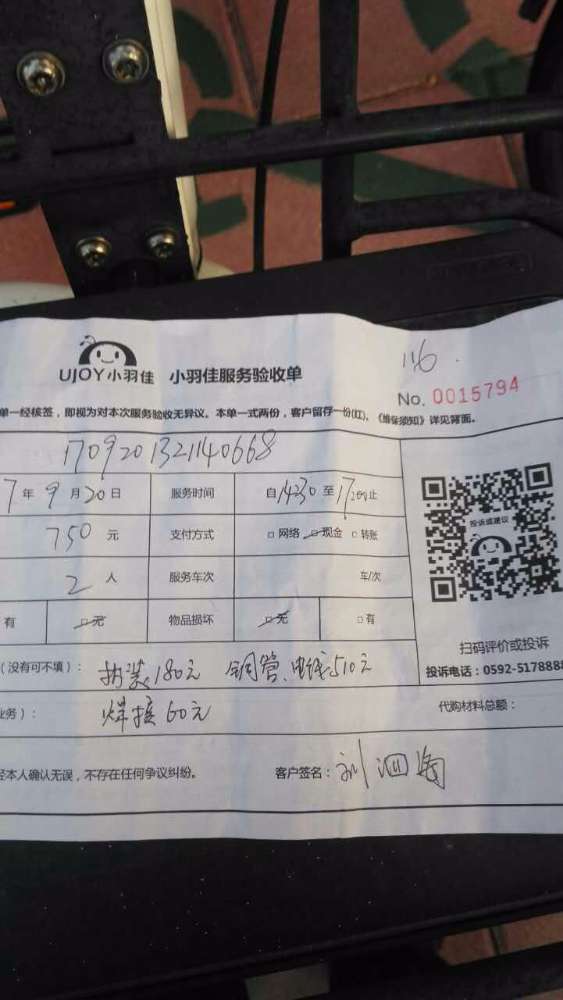 116
UJOY小羽佳 小羽佳服务验收单
No. 0015794
单一经核签，即视为对本次服务验收无异议。本单一式两份，客户留存一份(红)，《维保须知》详见背面。
1709201321140668
7年9月20日 服务时间 自1430至1720止
750元 支付方式 □网络 □现金 □转账
2人 服务车次 车/次
有 □无 物品损坏 □无 □有
投诉或建议
扫码评价或投诉
投诉电话：0592-5178888
(没有可不填)： 拆装180元 铜管、电线510元
业务)： 焊接60元 代购材料总额：
经本人确认无误，不存在任何争议纠纷。 客户签名：